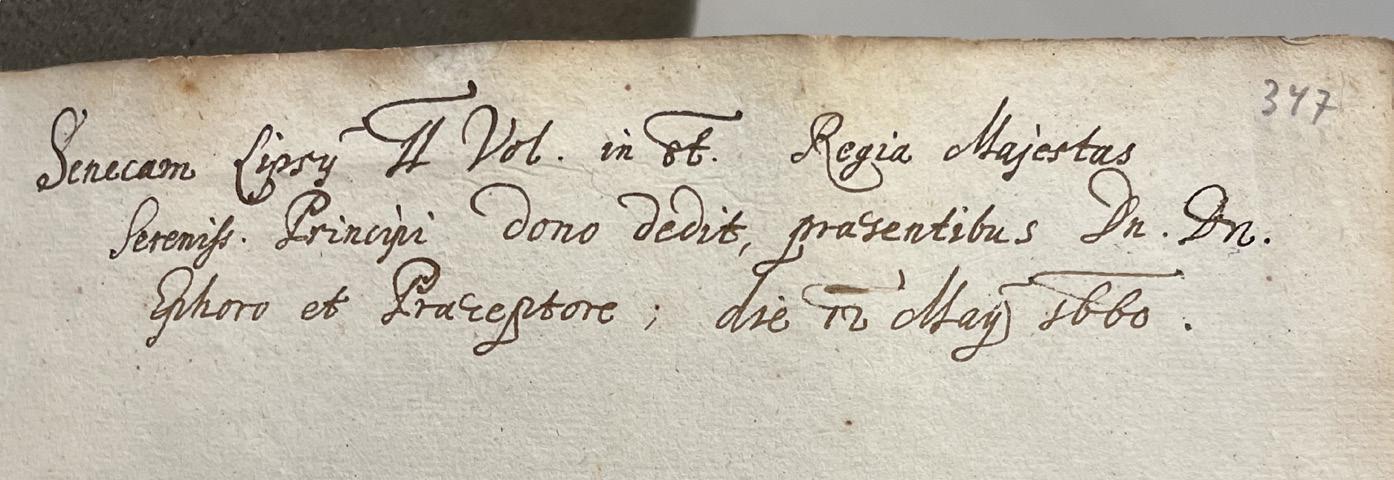 347
Senecam Lipsÿ II Vol. in 8t. Regia Majestas
Sereniss. Principi dono dedit, præsentibus Dn. Dn.
Ephoro et Præceptore; die 12 Maÿ 1660.